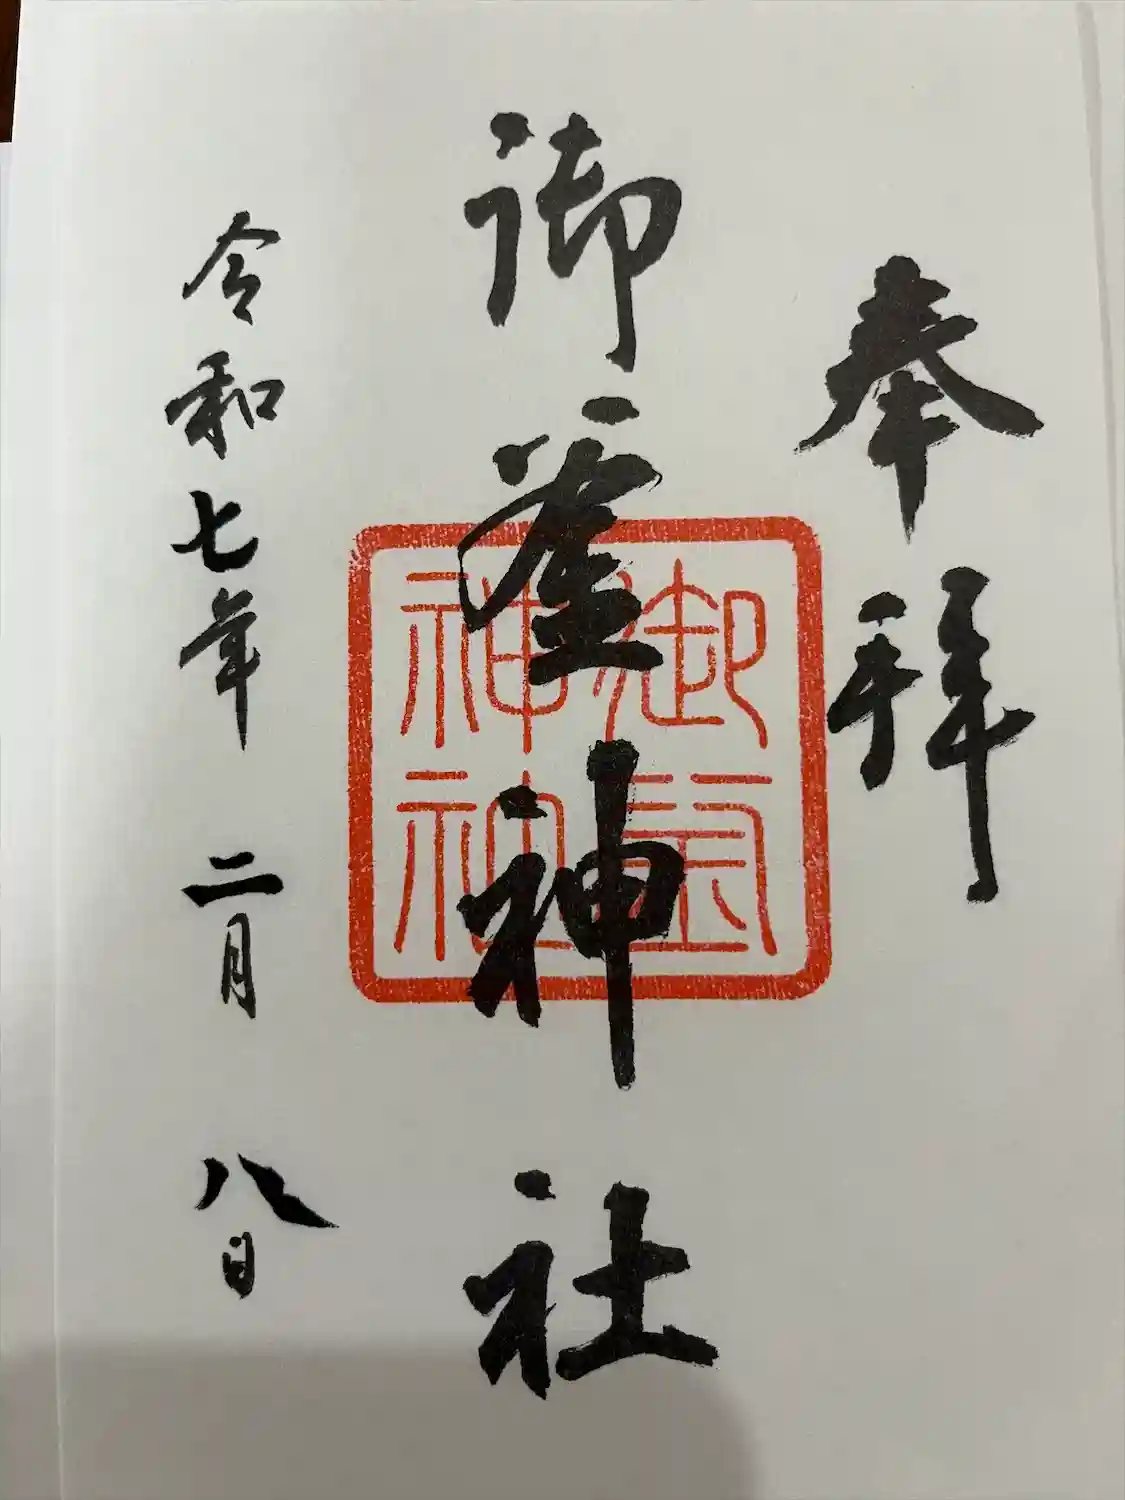 奉拝
御釜神社
令和七年 二月 八日
御釜
神社